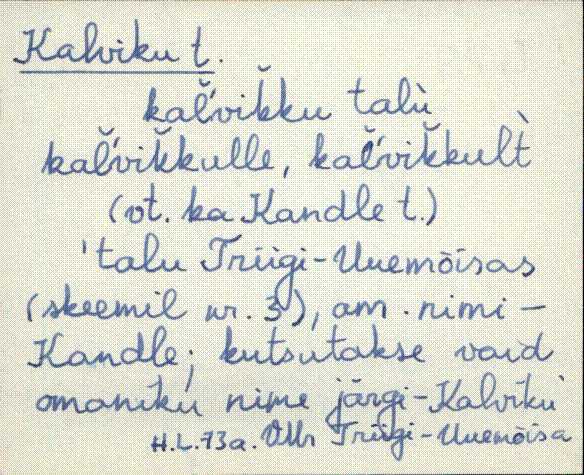 Kalviku t.
kal̆'vik̆ku talù
kal̆'vik̆kulle, kal̆'vik̆kult̀
(vt. ka Kandle t.)
'talu Triigi-Uuemõisas
(skeemil nr. 3), am. nimi –
Kandle; kutsutakse vaid
omaniku nime järgi - Kalviku'
H.L. 73a. VMr Triigi-Uuemõisa